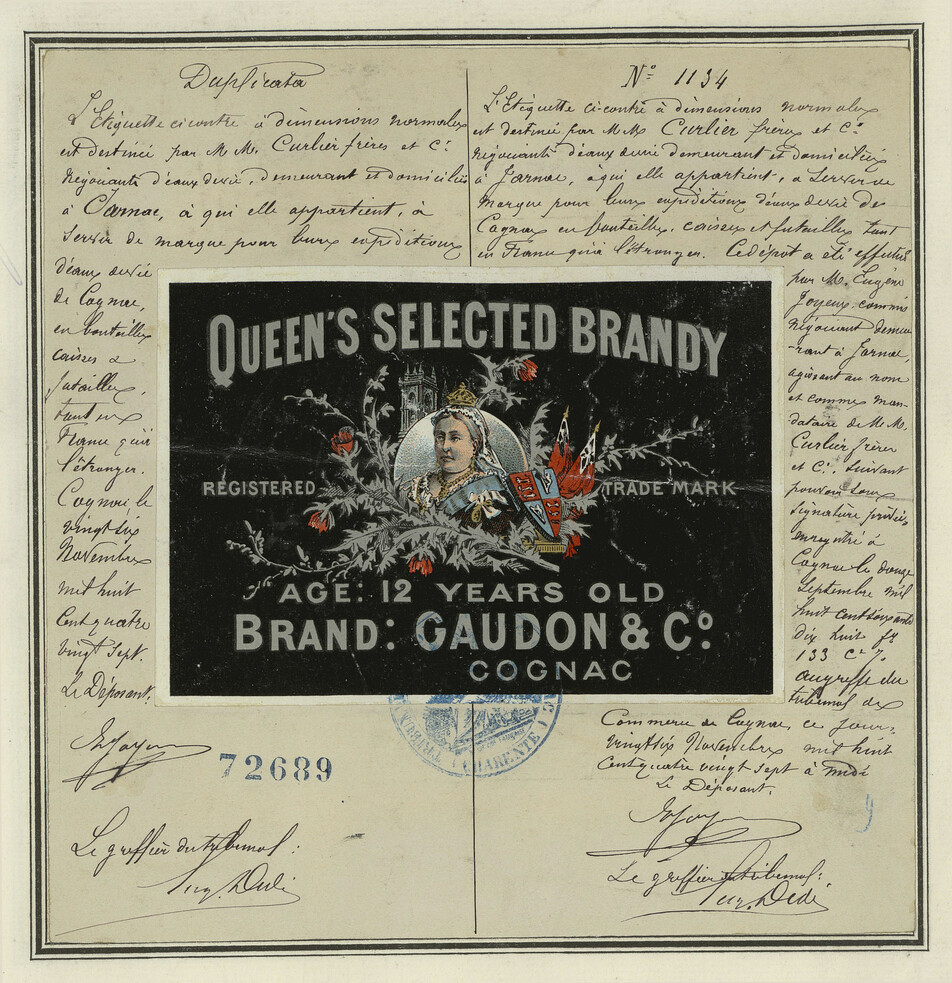 Duplicata
L'Etiquette ci contre à dimensions normales
est destinée par M M. Curlier frères et Cie
Négociants d'eaux de vie, demeurant et domiciliés
à Jarnac, à qui elle appartient, à
servir de marque pour leurs expéditions
d'eaux de vie
de Cognac,
en bouteilles
caisses &
futailles,
tant en
France qu'à
l'étranger.
Cognac le
vingt six
Novembre
mil huit
cent quatre
vingt sept.
Le Déposant.
72689
Le greffier du tribunal:
No 1134
L'Etiquette ci-contre à dimensions normales
est destinée par M M Curlier frères et Cie
Négociants d'eaux de vie demeurant et domiciliés
à Jarnac, à qui elle appartient, à servir de
marque pour leurs expéditions d'eaux de vie de
Cognac en bouteilles, caisses et futailles tant
en France qu'à l'étranger. Ce dépôt a été effectué
par M. Eugène
Joyeux commis
négociant demeu
-rant à Jarnac,
agissant au nom
et comme man-
dataire de M M.
Curlier frères
et Cie. suivant
pouvoir sous
signature privée,
enregistré à
Cognac le douze
Septembre mil
huit cent soixante
dix huit fo
133 Ce 7.
au greffe du
tribunal de
Commerce de Cognac, ce jour,
vingt six Novembre mil huit
cent quatre vingt sept à midi
Le Déposant.
Le greffier du tribunal:
QUEEN'S SELECTED BRANDY
REGISTERED TRADE MARK
AGE: 12 YEARS OLD
BRAND: GAUDON & Co
COGNAC
CHARENTE